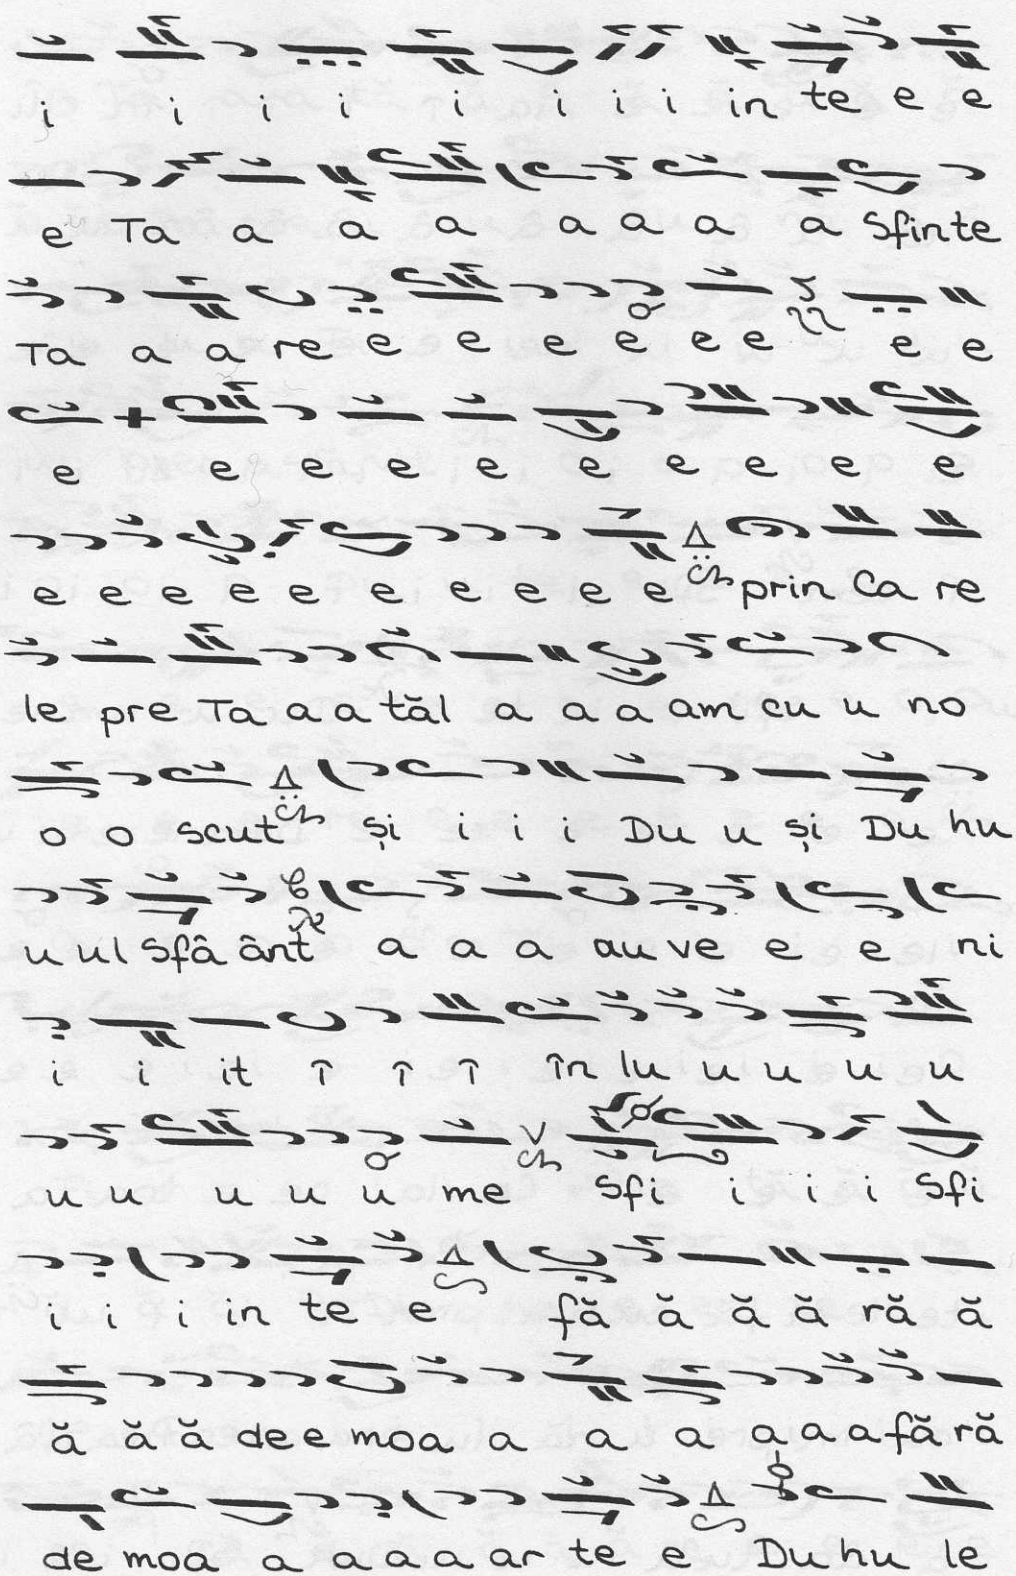 i i i i i i i i in te e e
e Ta a a a a a a a Sfinte
Ta a a re e e e e e e e e
e e e e e e e e e e
e e e e e e e e e e prin Ca re
le pre Ta a a tăl a a a am cu u no
o o scut și i i i Du u și Du hu
u ul Sfâ ânt a a a au ve e e ni
i i it î î î în lu u u u u
u u u u u me Sfi i i i Sfi
i i i in te e fă ă ă ă ră ă
ă ă ă de e moa a a a a a a fă ră
de moa a a a a ar te e Du hu le